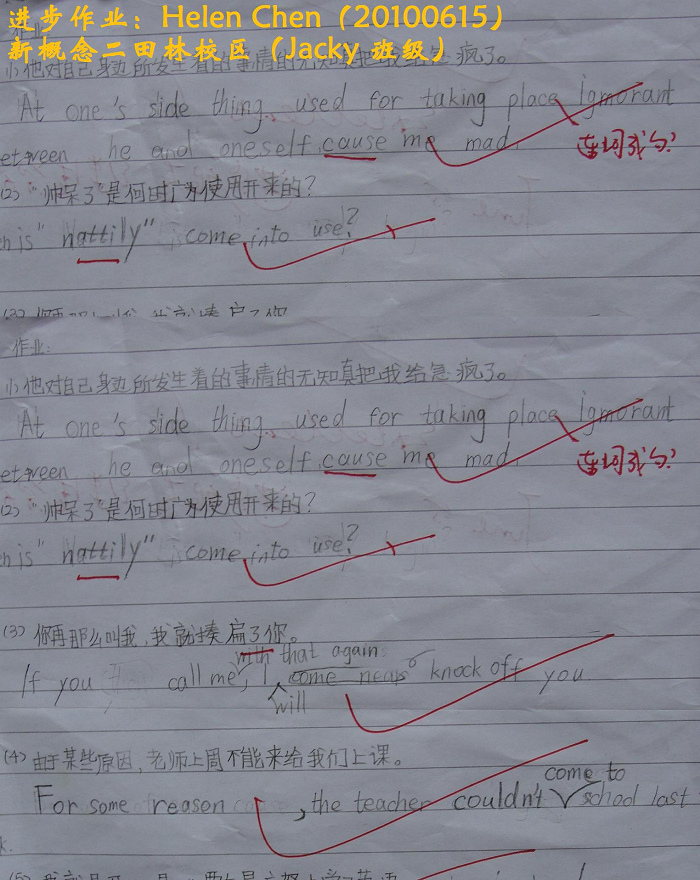 进步作业：Helen Chen（20100615）
新概念二田林校区（Jacky 班级）
作业:
(1) 他对自己身边所发生着的事情的无知真把我给急疯了。
At one's side thing used for taking place ignorant
etween he and oneself cause me mad.
连词成句?
(2) "帅呆了"是何时广为使用开来的?
n is "nattily" come into use?
(3) 你再那么叫我,我就揍扁了你。
作业:
(1) 他对自己身边所发生着的事情的无知真把我给急疯了。
At one's side thing used for taking place ignorant
etween he and oneself cause me mad.
连词成句?
(2) "帅呆了"是何时广为使用开来的?
n is "nattily" come into use?
(3) 你再那么叫我,我就揍扁了你。
with that again
If you call me, I come near knock off you
will
(4) 由于某些原因,老师上周不能来给我们上课。
come to
For some reason , the teacher couldn't school last
k.